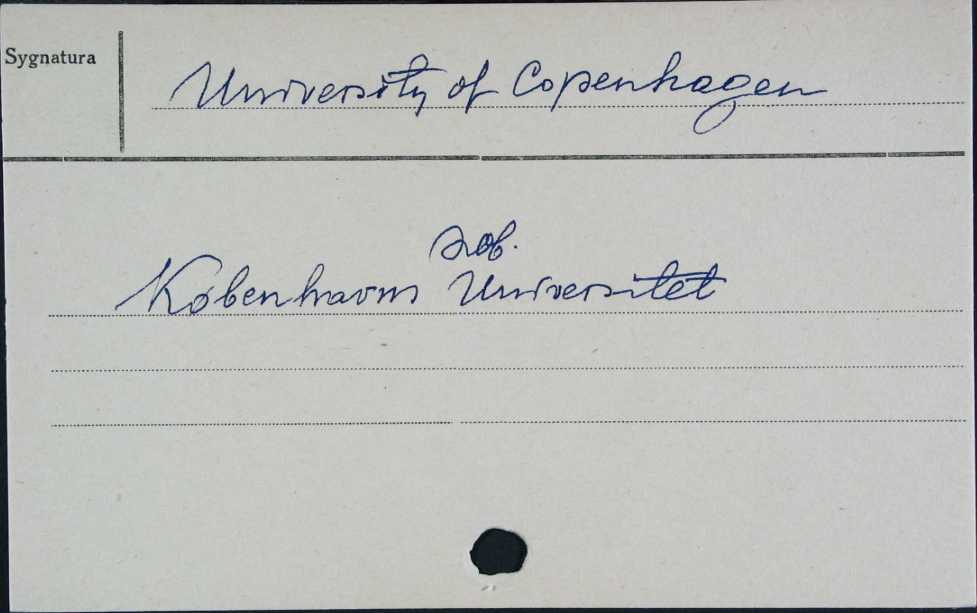 Sygnatura
University of Copenhagen
zob.
Københavns Universitet